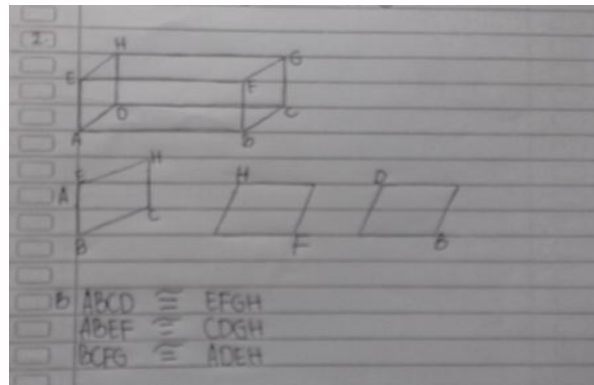 2.
H
G
E
F
D
C
A
B
E
H
H
D
A
C
B
F
B
B ABCD ≅ EFGH
ABEF ≅ CDGH
BCFG ≅ ADEH